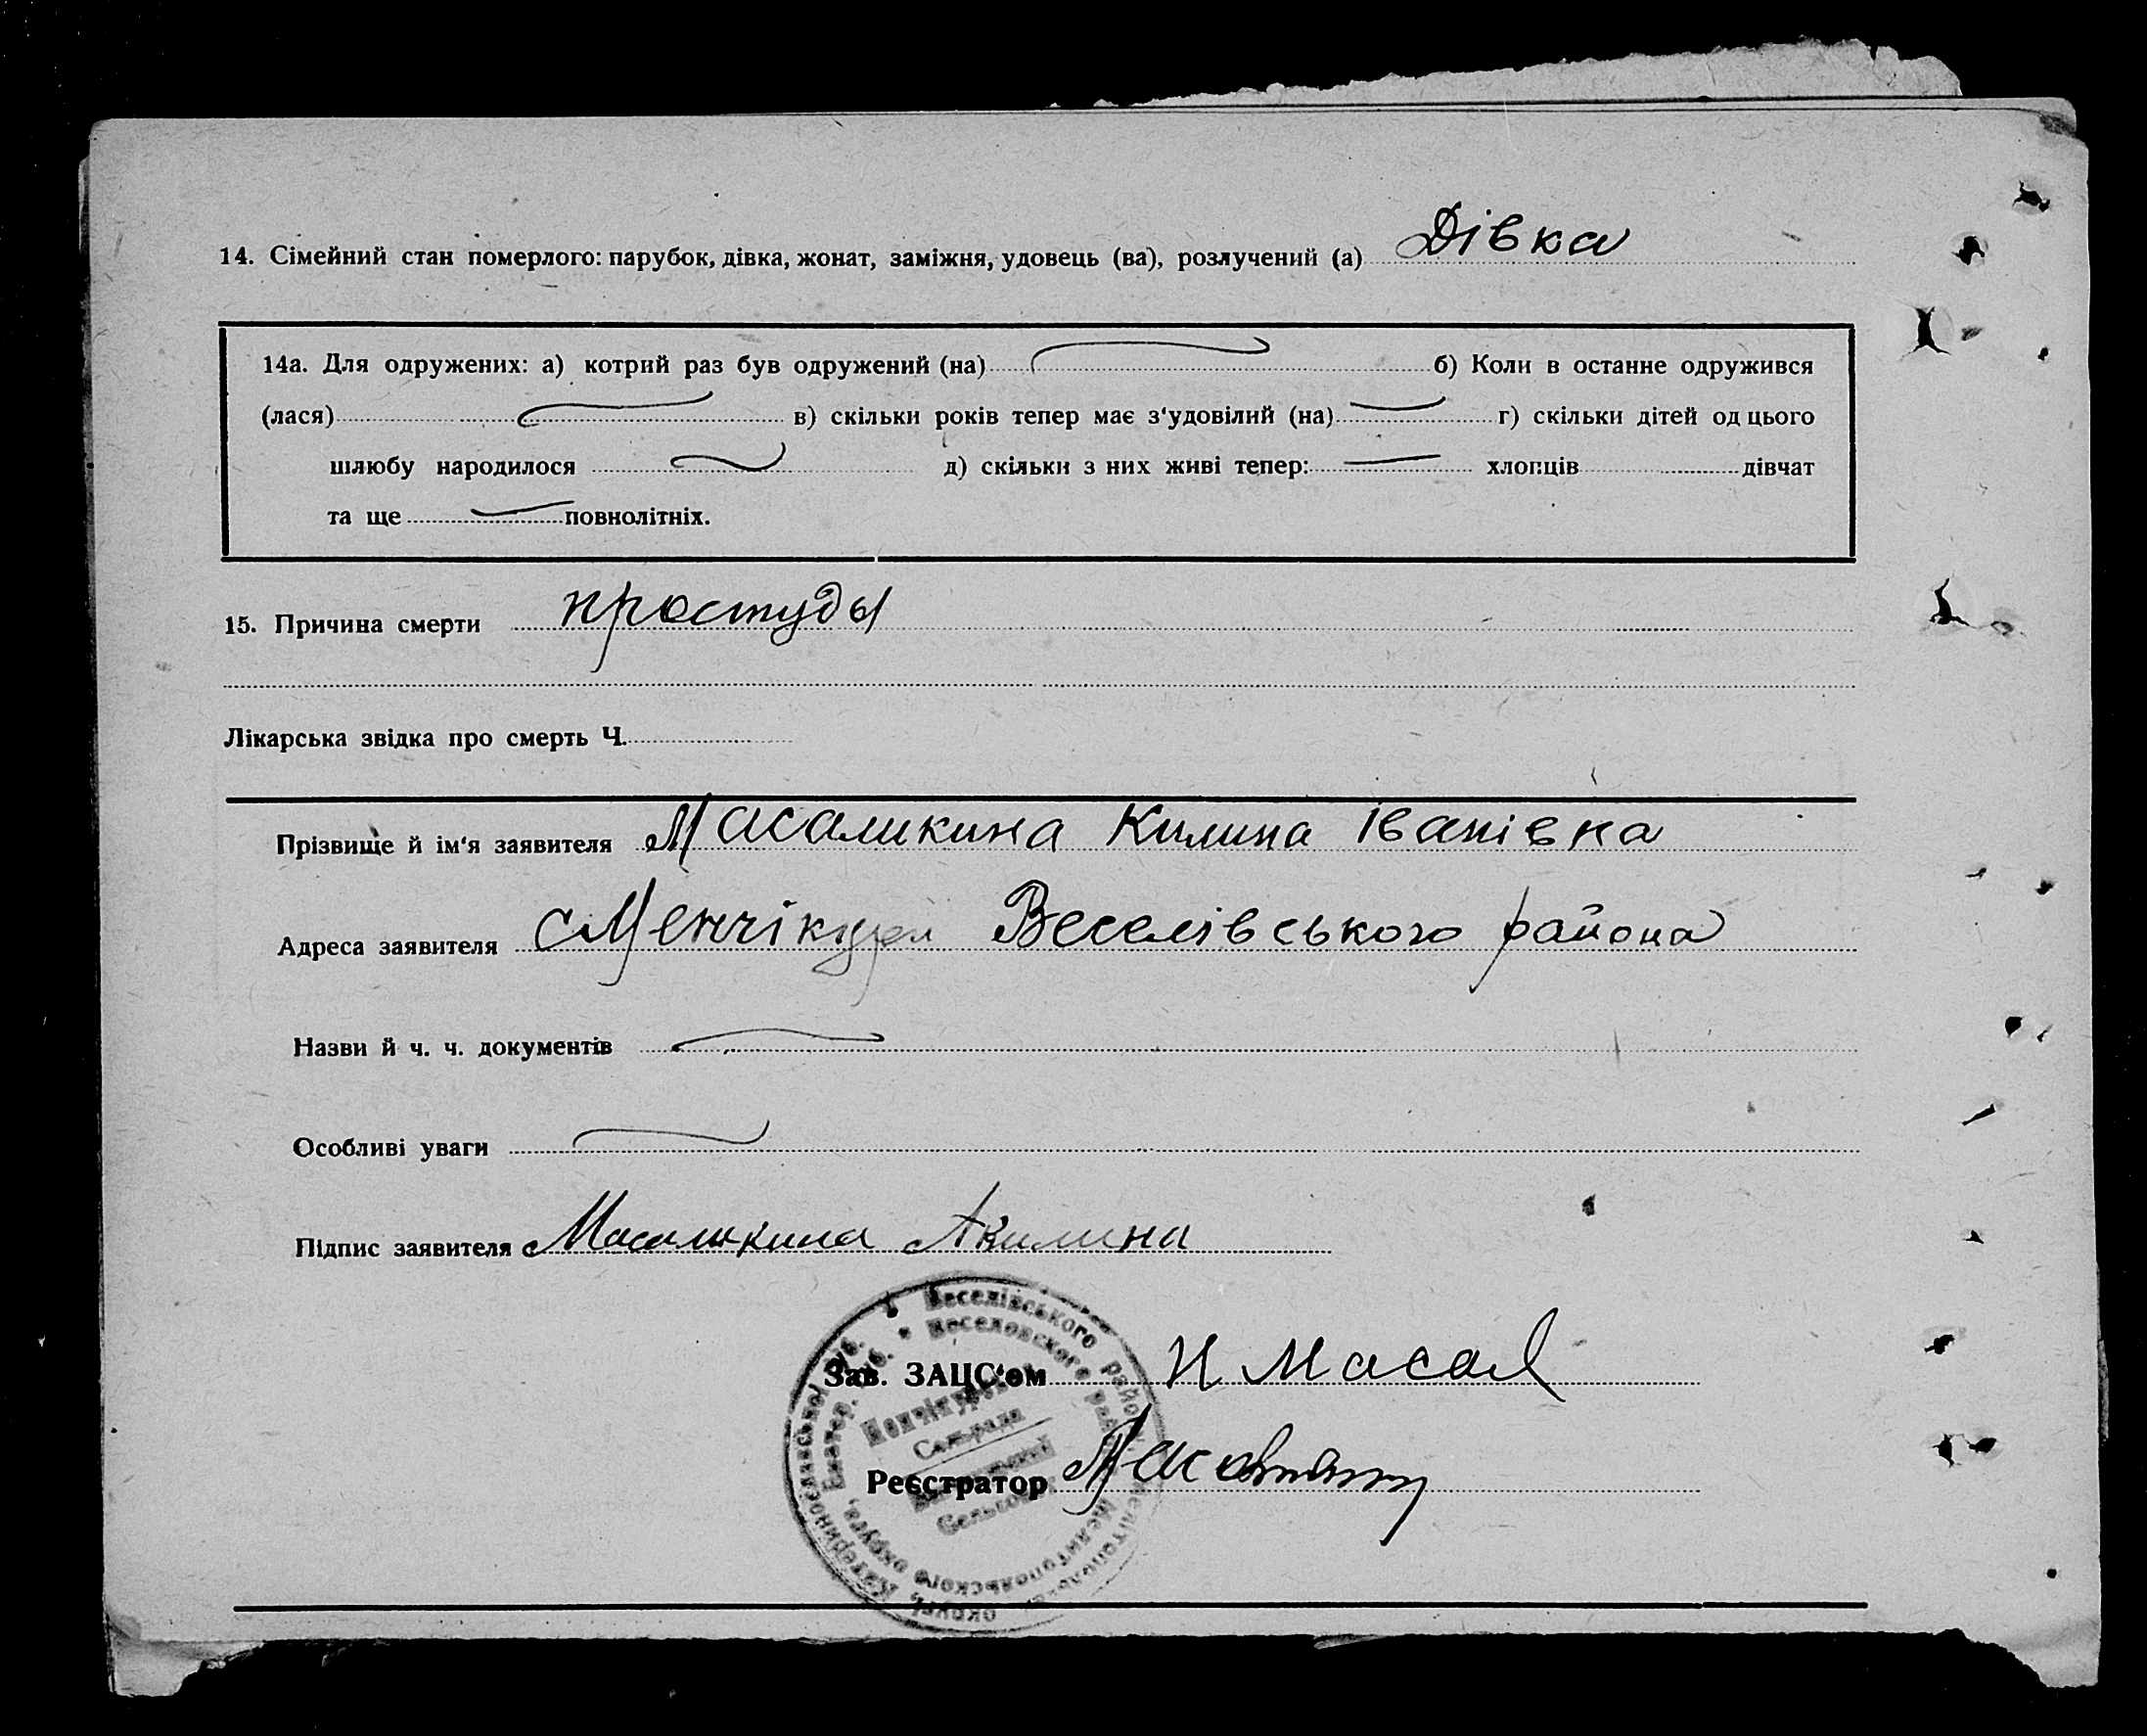 14. Сімейний стан померлого: парубок, дівка, жонат, заміжня, удовець (ва), розлучений (а) Дівка
14а. Для одружених: а) котрий раз був одружений (на) б) Коли в останне одружився
(лася) в) скільки років тепер має з'удовілий (на) г) скільки дітей од цього
шлюбу народилося д) скільки з них живі тепер: хлопців дівчат
та ще повнолітніх.
15. Причина смерти простуды
Лікарська звідка про смерть Ч.
Прізвище й ім'я заявителя Масаликина Килина Іванівна
Адреса заявителя с Менчікури Веселівського района
Назви й ч. ч. документів
Особливі уваги
Підпис заявителя Масаликина Акилина
Веселівського району Мелітопольсько округи, Катеринославської губ.
Веселовского Мелитопольского округа, Екатер. губ.
Менчікур
Сельрада
Зав. ЗАЦС'ом И Масал
Реєстратор